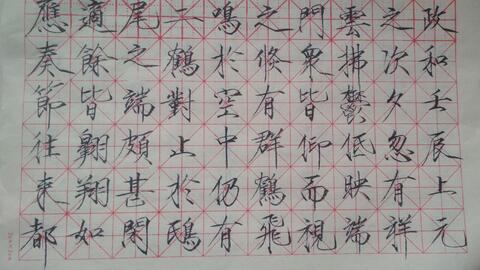 政和壬辰上元
之次夕忽有祥
雲拂鬱低映端
門衆皆仰而視
之倏有群鶴飛
鳴於空中仍有
二鶴對止於鴟
尾之端頗甚閑
適餘皆翱翔如
應奏節往来都